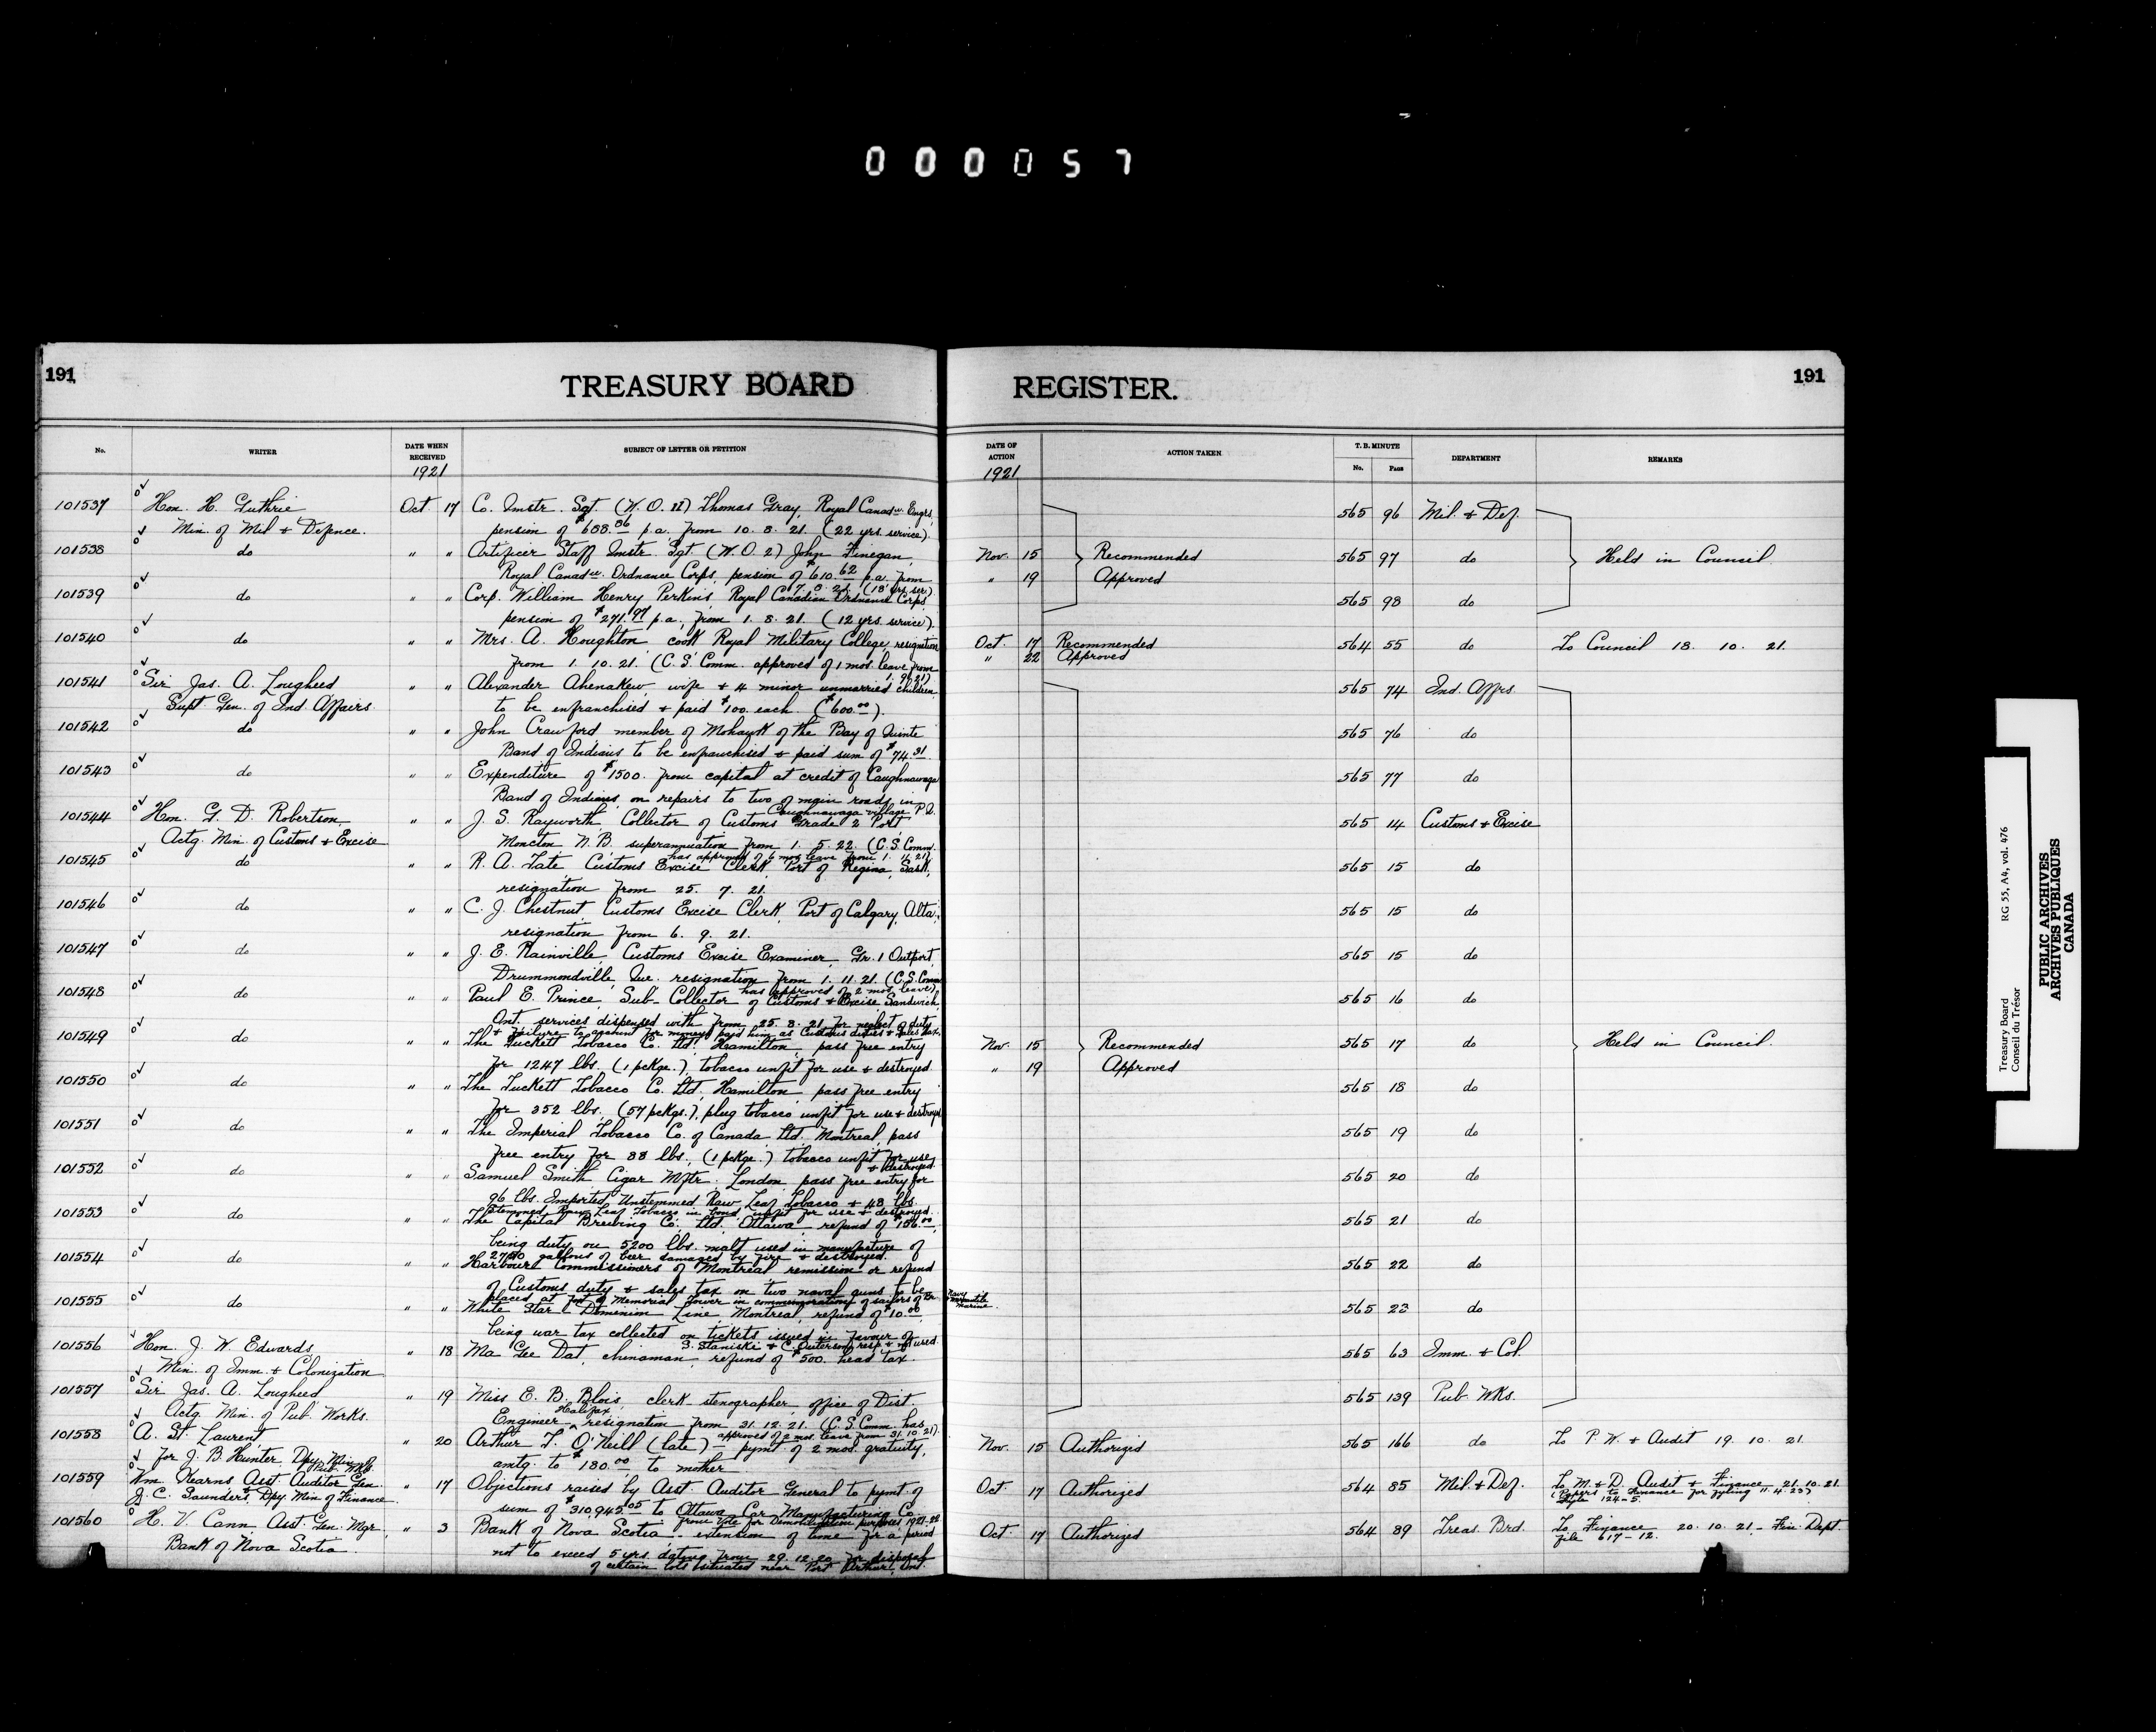 000057
191
TREASURY BOARD
REGISTER.
191
No.
WRITER
DATE WHEN RECEIVED
SUBJECT OF LETTER OR PETITION
DATE OF ACTION
ACTION TAKEN
T. B. MINUTE
No. PAGE
DEPARTMENT
REMARKS
1921
1921
101537 Hon. H. Guthrie Oct 17 Co. Qmstr. Sgt. (W.O. II) Thomas Gray, Royal Canadn. Engrs, 565 96 Mil. & Def.
Min. of Mil & Defence. pension of $688.86 p.a. from 10. 8. 21. (22 yrs. service).
101538 do " " Artificer Staff Qmstr. Sgt. (W.O. 2) John Finegan, Nov. 15 Recommended 565 97 do Held in Council
Royal Canadn. Ordnance Corps, pension of $610.62 p.a. from " 19 Approved
7. 8. 21. (18 yrs. ser.)
101539 do " " Corp. William Henry Perkins, Royal Canadian Ordnance Corps 565 98 do
pension of $271.97 p.a., from 1. 8. 21. (12 yrs. service).
101540 do " " Mrs. A. Houghton, cook Royal Military College, resignation Oct. 17 Recommended 564 55 do To Council 18. 10. 21.
from 1. 10. 21. (C.S. Comm. approved of 1 mos. leave from " 22 Approved
1. 9. 21)
101541 Sir Jas. A. Lougheed " " Alexander Ahenakew, wife & 4 minor unmarried children, 565 74 Ind. Affrs.
Supt. Gen. of Ind. Affairs to be enfranchised & paid $100. each. ($600.00).
101542 do " " John Crawford member of Mohawk of the Bay of Quinte 565 76 do
Band of Indians to be enfranchised & paid sum of $74.31.
101543 do " " Expenditure of $1500. from capital at credit of Caughnawaga 565 77 do
Band of Indians, on repairs to two of main roads in
Caughnawaga village P.Q.
101544 Hon. G. D. Robertson " " J. S. Rayworth, Collector of Customs Grade 2 Port 565 14 Customs & Excise
Actg. Min. of Customs & Excise Moncton N.B. superannuation from 1. 5. 22. (C.S. Comm.
has approved of 6 mos. leave from 1. 11. 21)
101545 do " " R. A. Tate, Customs Excise Clerk, Port of Regina, Sask, 565 15 do
resignation from 25. 7. 21.
101546 do " " C. J. Chestnut, Customs Excise Clerk, Port of Calgary, Alta, 565 15 do
resignation from 6. 9. 21.
101547 do " " J. E. Rainville, Customs Excise Examiner, Gr. 1 Outport, 565 15 do
Drummondville, Que. resignation from 1. 11. 21. (C.S. Comm
has approved of 2 mos. leave)
101548 do " " Paul E. Prince, Sub-Collector of Customs & Excise Sandwich 565 16 do
Ont. services dispensed with from 25. 8. 21 for neglect of duty
& failure to account for moneys paid him as Customs duties & sales tax.
101549 do " " The Tuckett Tobacco Co. Ltd. Hamilton, pass free entry Nov. 15 Recommended 565 17 do Held in Council.
for 1247 lbs. (1 pckge.), tobacco unfit for use & destroyed. " 19 Approved
101550 do " " The Tuckett Tobacco Co. Ltd, Hamilton pass free entry 565 18 do
for 352 lbs. (57 pckgs.), plug tobacco unfit for use & destroyed
101551 do " " The Imperial Tobacco Co. of Canada Ltd. Montreal, pass 565 19 do
free entry for 88 lbs. (1 pckge.) tobacco unfit for use
& destroyed.
101552 do " " Samuel Smith, Cigar Mftr. London pass free entry for 565 20 do
96 lbs. Imported, Unstemmed Raw Leaf Tobacco & 48 lbs.
Stemmed Raw Leaf Tobacco in bond unfit for use & destroyed.
101553 do " " The Capital Brewing Co. Ltd. Ottawa refund of $156.00, 565 21 do
being duty on 5200 lbs. malt used in manufacture of
2750 gallons of beer damaged by fire & destroyed.
101554 do " " Harbour Commissioners of Montreal remission or refund 565 22 do
of Customs duty & sales tax on two naval guns to be
placed at foot of Memorial Tower in commemoration of sailors of Br. Navy & mercantile marine.
101555 do " " White Star Dominion Line, Montreal, refund of $10.00, 565 23 do
being war tax collected on tickets issued in favour of
S. Staniski & C. resp & not used.
101556 Hon. J. W. Edwards " 18 Ma Gee Dat, chinaman, refund of $500. head tax. 565 63 Imm. & Col.
Min. of Imm. & Colonization
101557 Sir Jas. A. Lougheed " 19 Miss E. B. Blois, clerk stenographer office of Dist. 565 139 Pub. Wks.
Actg. Min. of Pub. Works. Engineer Halifax, resignation from 31. 12. 21. (C.S. Comm. has
approved of 2 mos. leave from 31. 10. 21).
101558 A. St. Laurent " 20 Arthur T. O'Neill (late) - pymt. of 2 mos. gratuity, Nov. 15 Authorized 565 166 do To P.W. & Audit 19. 10. 21.
for J. B. Hunter Dpy. Min. of Pub. Wks. amtg. to $180.00 to mother
101559 Wm. Kearns Asst Auditor Gen. " 17 Objections raised by Asst Auditor General to pymt. of Oct. 17 Authorized 564 85 Mil. & Def. To M. & D. Audit & Finance 21. 10. 21.
J. C. Saunders, Dpy. Min of Finance sum of $310,945.05 to Ottawa Car Manufacturing Co. (Papers to Finance for fyling 11. 4. 23)
from Vote for Demobilization purposes 1921-22 File 124-5.
101560 H. V. Cann Asst. Gen. Mgr. " 3 Bank of Nova Scotia - extension of time for a period Oct. 17 Authorized 564 89 Treas. Brd. To Finance 20. 10. 21 - Fin. Dept.
Bank of Nova Scotia not to exceed 5 yrs. dating from 29. 12. 20 for disposal file 617-12.
of certain lots situated near Port Arthur, Ont.
Treasury Board
Conseil du Trésor
RG 55, A4, vol. 476
PUBLIC ARCHIVES
ARCHIVES PUBLIQUES
CANADA